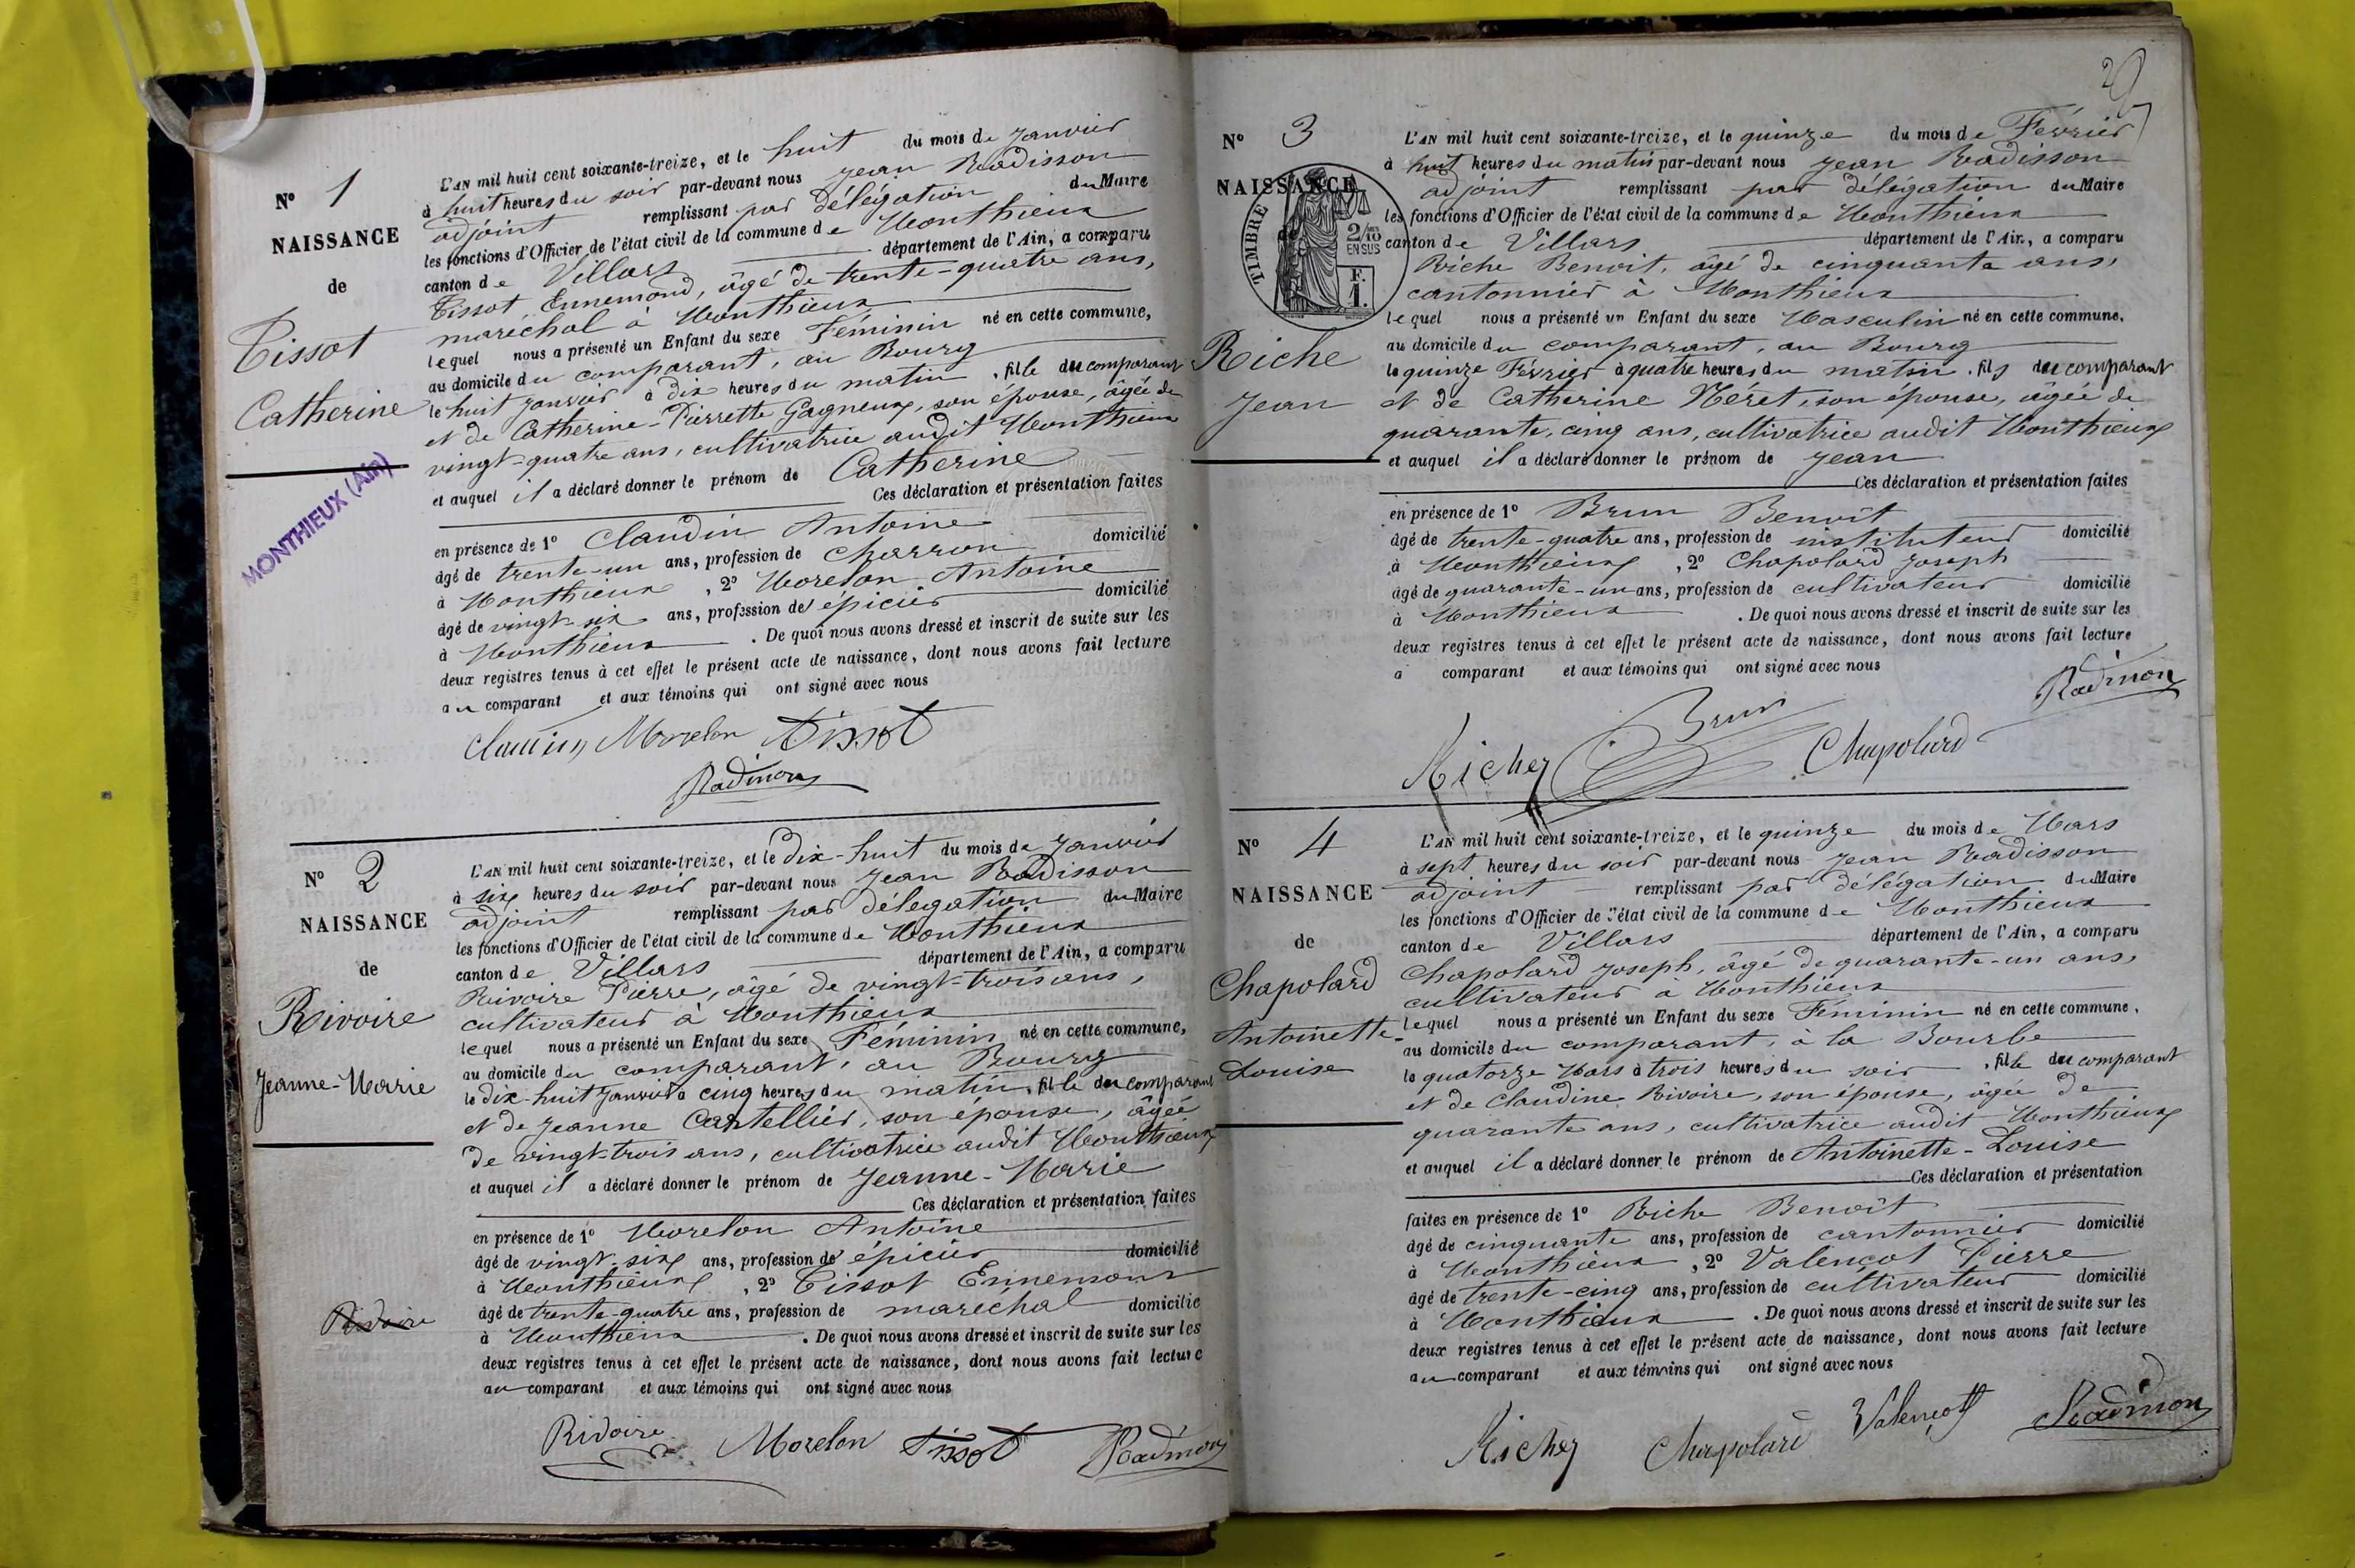 N° 1
NAISSANCE
de
Tissot
Catherine
MONTHIEUX (Ain)
L'AN mil huit cent soixante-treize, et le huit du mois de Janvier
à huit heures du soir par-devant nous Jean Radisson
adjoint remplissant par délégation du Maire
les fonctions d'Officier de l'état civil de la commune de Monthieux
canton de Villars département de l'Ain, a comparu
Tissot Ennemond, âgé de trente-quatre ans,
maréchal à Monthieux
lequel nous a présenté un Enfant du sexe Féminin né en cette commune,
au domicile du comparant, au Bourg
le huit Janvier à dix heures du matin, fille du comparant
et de Catherine-Pierrette Gagneux, son épouse, âgée de
vingt-quatre ans, cultivatrice audit Monthieux
et auquel il a déclaré donner le prénom de Catherine
Ces déclaration et présentation faites
en présence de 1° Claudin Antoine
âgé de trente-un ans, profession de charron domicilié
à Monthieux, 2° Morelon Antoine
âgé de vingt-six ans, profession de épicier domicilié
à Monthieux. De quoi nous avons dressé et inscrit de suite sur les
deux registres tenus à cet effet le présent acte de naissance, dont nous avons fait lecture
au comparant et aux témoins qui ont signé avec nous
Claudin Morelon Tissot
Radisson
N° 2
NAISSANCE
de
Rivoire
Jeanne-Marie
Rivoire
L'AN mil huit cent soixante-treize, et le dix-huit du mois de Janvier
à six heures du soir par-devant nous Jean Radisson
adjoint remplissant par délégation du Maire
les fonctions d'Officier de l'état civil de la commune de Monthieux
canton de Villars département de l'Ain, a comparu
Rivoire Pierre, âgé de vingt-trois ans,
cultivateur à Monthieux
lequel nous a présenté un Enfant du sexe Féminin né en cette commune,
au domicile du comparant, au Bourg
le dix-huit Janvier à cinq heures du matin, fille du comparant
et de Jeanne Cartellier, son épouse, âgée
de vingt-trois ans, cultivatrice audit Monthieux
et auquel il a déclaré donner le prénom de Jeanne-Marie
Ces déclaration et présentation faites
en présence de 1° Morelon Antoine
âgé de vingt-six ans, profession de épicier domicilié
à Monthieux, 2° Tissot Ennemond
âgé de trente-quatre ans, profession de maréchal domicilié
à Monthieux. De quoi nous avons dressé et inscrit de suite sur les
deux registres tenus à cet effet le présent acte de naissance, dont nous avons fait lecture
au comparant et aux témoins qui ont signé avec nous
Rivoire Morelon Tissot Radisson
29
N° 3
NAISSANCE
de
TIMBRE
2/10
EN SUS
F.
1.
Riche
Jean
L'AN mil huit cent soixante-treize, et le quinze du mois de Février
à huit heures du matin par-devant nous Jean Radisson
adjoint remplissant par délégation du Maire
les fonctions d'Officier de l'état civil de la commune de Monthieux
canton de Villars département de l'Ain, a comparu
Riche Benoit, âgé de cinquante ans,
cantonnier à Monthieux
lequel nous a présenté un Enfant du sexe Masculin né en cette commune,
au domicile du comparant, au Bourg
le quinze Février à quatre heures du matin, fils du comparant
et de Catherine Méret, son épouse, âgée de
quarante-cinq ans, cultivatrice audit Monthieux
et auquel il a déclaré donner le prénom de Jean
Ces déclaration et présentation faites
en présence de 1° Brun Benoît
âgé de trente-quatre ans, profession de instituteur domicilié
à Monthieux, 2° Chapolard Joseph
âgé de quarante-un ans, profession de cultivateur domicilié
à Monthieux. De quoi nous avons dressé et inscrit de suite sur les
deux registres tenus à cet effet le présent acte de naissance, dont nous avons fait lecture
a comparant et aux témoins qui ont signé avec nous
Radisson
Riche Brun Chapolard
N° 4
NAISSANCE
de
Chapolard
Antoinette-
Louise
L'AN mil huit cent soixante-treize, et le quinze du mois de Mars
à sept heures du soir par-devant nous Jean Radisson
adjoint remplissant par délégation du Maire
les fonctions d'Officier de l'état civil de la commune de Monthieux
canton de Villars département de l'Ain, a comparu
Chapolard Joseph, âgé de quarante-un ans,
cultivateur à Monthieux
lequel nous a présenté un Enfant du sexe Féminin né en cette commune,
au domicile du comparant, à la Bourbe
le quatorze Mars à trois heures du soir, fille du comparant
et de Claudine Rivoire, son épouse, âgée de
quarante ans, cultivatrice audit Monthieux
et auquel il a déclaré donner le prénom de Antoinette-Louise
Ces déclaration et présentation
faites en présence de 1° Riche Benoît
âgé de cinquante ans, profession de cantonnier domicilié
à Monthieux, 2° Valençot Pierre
âgé de trente-cinq ans, profession de cultivateur domicilié
à Monthieux. De quoi nous avons dressé et inscrit de suite sur les
deux registres tenus à cet effet le présent acte de naissance, dont nous avons fait lecture
au comparant et aux témoins qui ont signé avec nous
Riche Chapolard Valençot Radisson